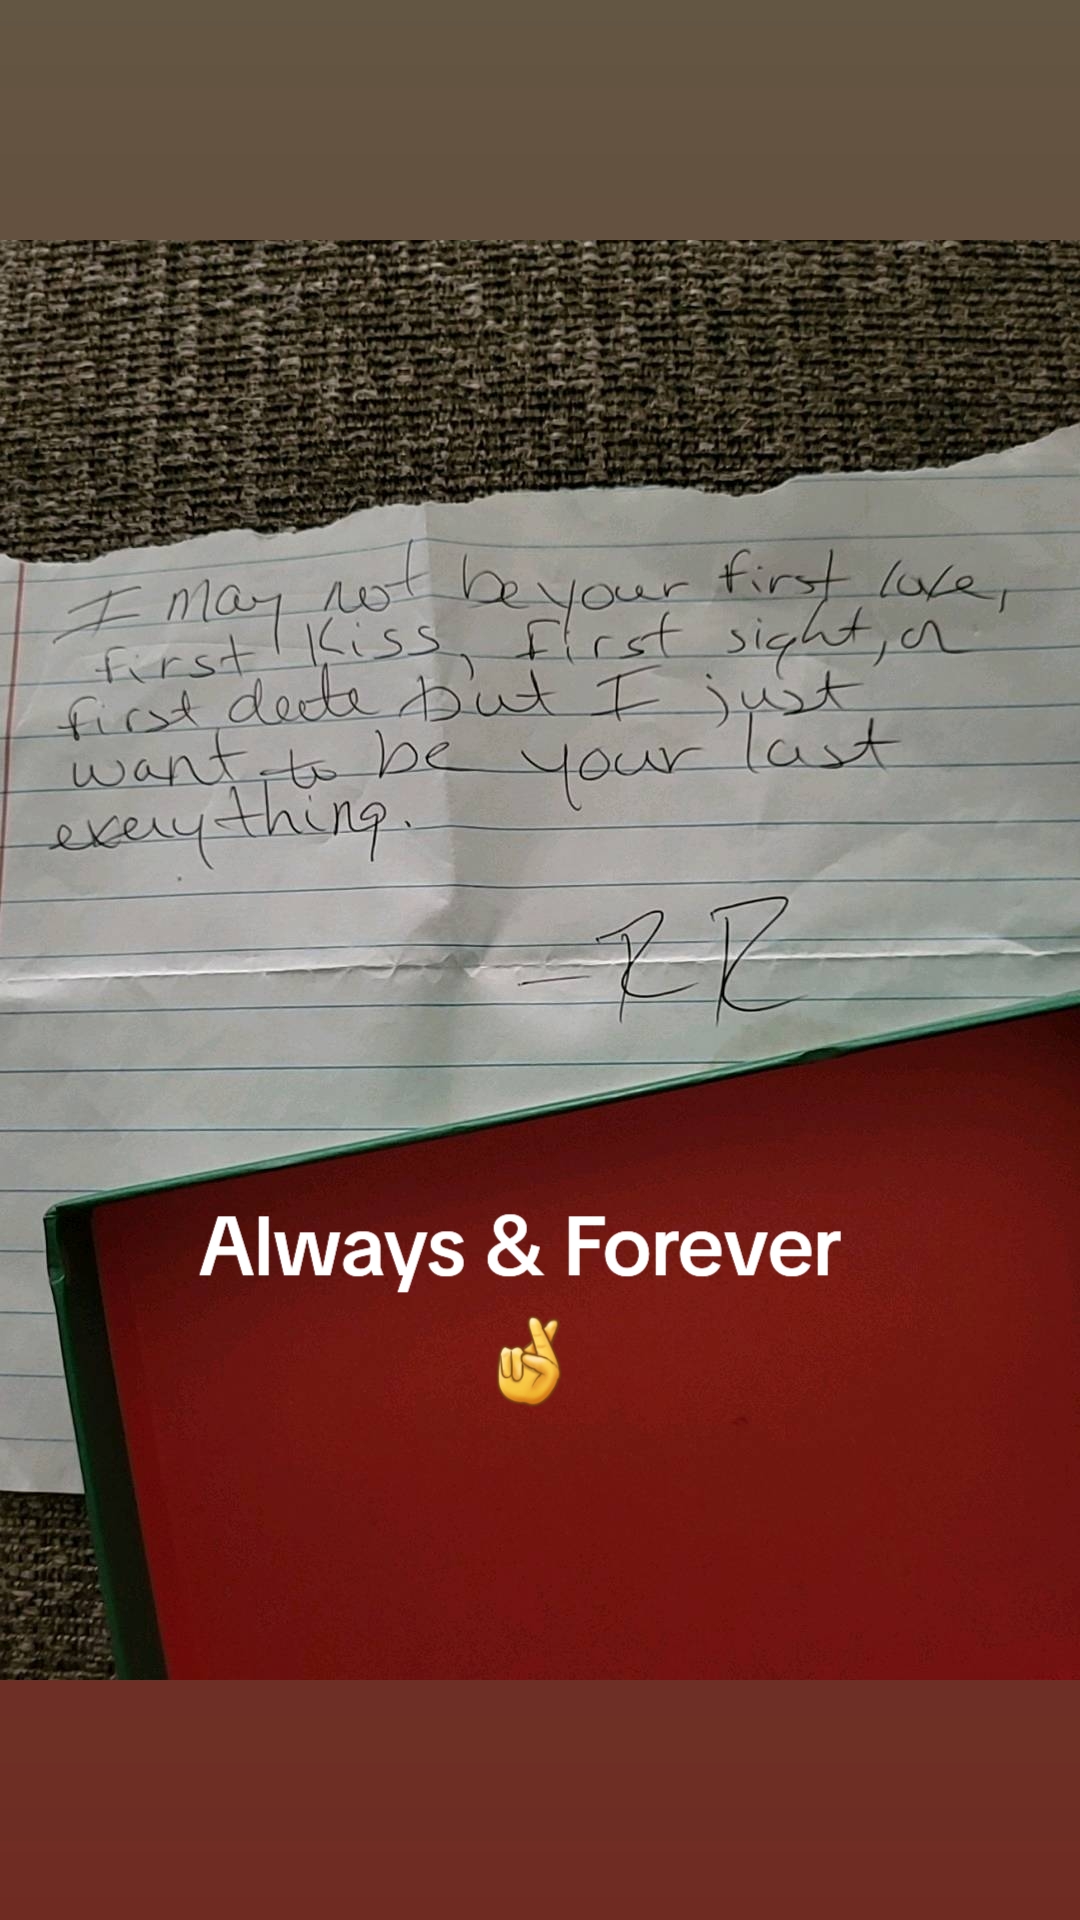 I may not be your first love,
first Kiss, first sight, or
first date but I just
want to be your last
everything.
- RR
Always & Forever
🤞